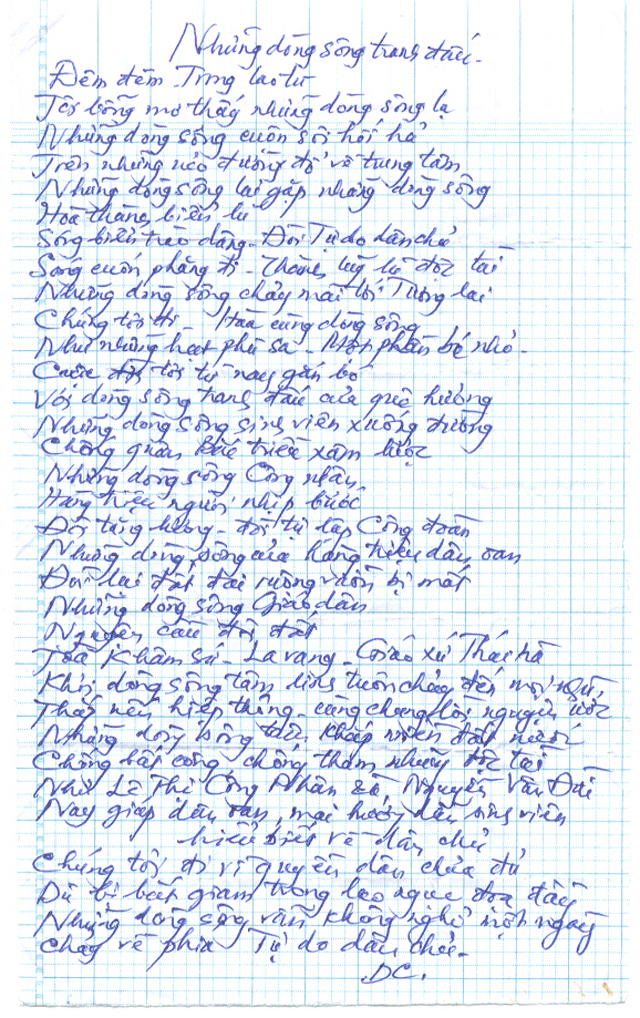 Những dòng sông tranh đấu.
Đêm đêm - Trong lao tù
Tôi bỗng mơ thấy những dòng sông lạ
Những dòng sông cuộn sôi hối hả
Trên những nẻo đường đổ về trung tâm
Những dòng sông lại gặp những dòng sông
Hoà thành biển lũ
Sóng biển trào dâng - Đòi Tự do dân chủ
Sóng cuốn phăng đi - thành luỹ lũ độc tài
Những dòng sông chảy mãi tới Tương lai
Chúng tôi đi - Hoà cùng dòng sông
Như những hạt phù sa - Một phần bé nhỏ -
Cuộc đời tôi từ nay gắn bó
Với dòng sông tranh đấu của quê hương
Những dòng sông sinh viên xuống đường
Chống quân Bắc triều xâm lược
Những dòng sông Công nhân
Hàng triệu người nhịp bước
Đòi tăng lương - đòi tự lập Công đoàn
Những dòng sông của hàng triệu dân oan
Đòi lại đất đai ruộng vườn bị mất
Những dòng sông Giáo dân
Nguyện cầu đòi đất
Toà Khâm sứ - La vang - Giáo xứ Thái hà
Khơi dòng sông tâm linh tuôn chảy đến mọi nhà
Thắp nến hiệp thông - cùng chung lời nguyện ước
Những dòng sông trên khắp miền đất nước
Chống bất công, chống tham nhũng độc tài
Như Lê Thị Công Nhân và Nguyễn Văn Đài
Nay giúp dân oan, mai hướng dẫn sinh viên
hiểu biết về dân chủ
Chúng tôi đi vì quyền dân chưa đủ
Dù bị bắt giam trong lao ngục đoạ đầy
Những dòng sông vẫn không nghỉ một ngày
Chảy về phía Tự do dân chủ -
DC.